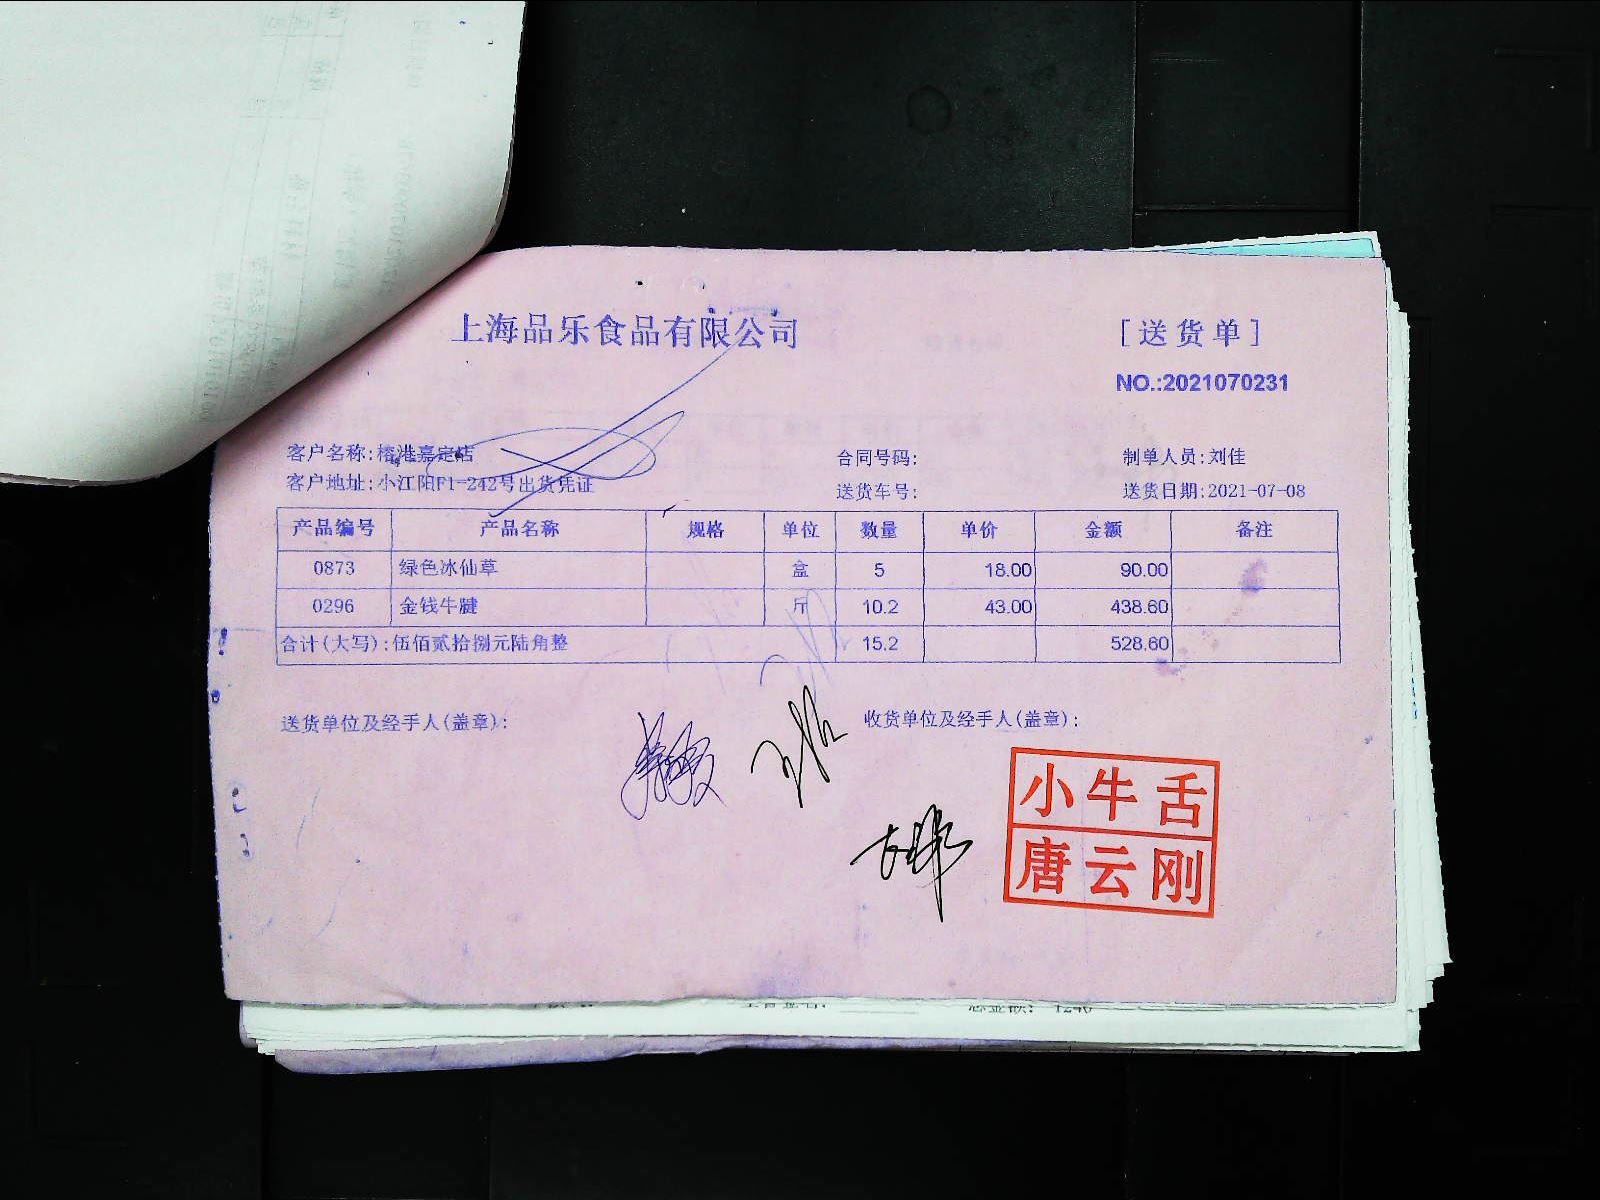 上海品乐食品有限公司
[送货单]
NO.:2021070231
客户名称:榕港嘉定店 合同号码: 制单人员:刘佳
客户地址:小江阳F1-242号出货凭证 送货车号: 送货日期:2021-07-08
产品编号 产品名称 规格 单位 数量 单价 金额 备注
0873 绿色冰仙草 盒 5 18.00 90.00
0296 金钱牛腱 斤 10.2 43.00 438.60
合计(大写):伍佰贰拾捌元陆角整 15.2 528.60
送货单位及经手人(盖章): 收货单位及经手人(盖章):
小牛舌
唐云刚
总金额: 1240